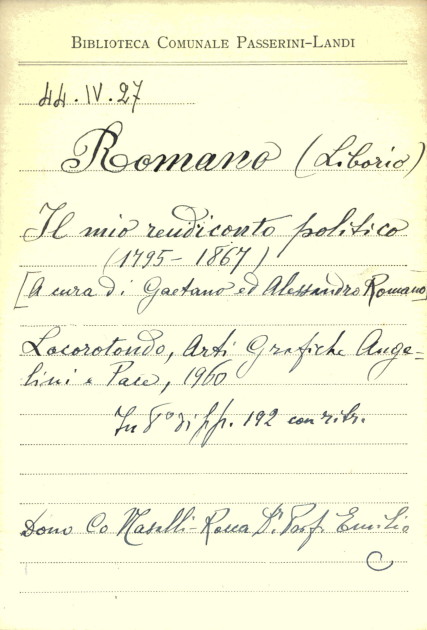 BIBLIOTECA COMUNALE PASSERINI-LANDI
44.IV.27
Romano (Liborio)
Il mio rendiconto politico
(1795-1867)
[A cura di Gaetano ed Alessandro Romano]
Locorotondo, Arti Grafiche Ange=
lini e Pace, 1960
In 8º di pp. 192 con ritr.
Dono Co Nasalli-Rocca Dr. Prof. Emilio
C